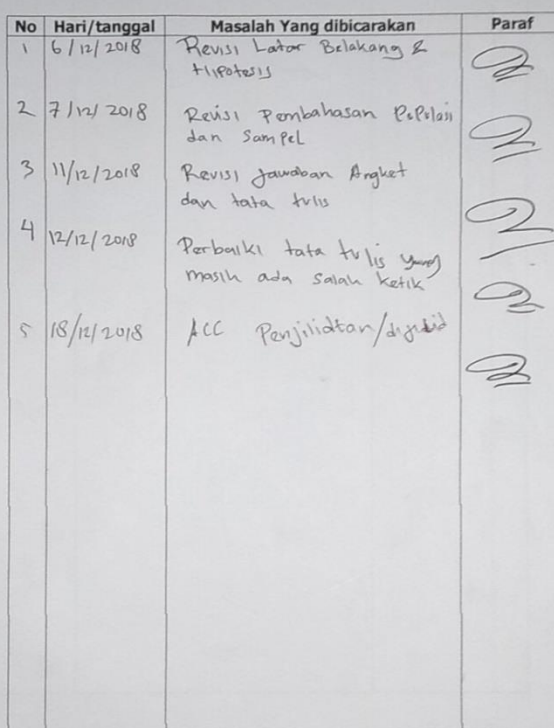 No Hari/tanggal Masalah Yang dibicarakan Paraf
1 6/12/2018 Revisi Latar Belakang &
Hipotesis
2 7/12/2018 Revisi Pembahasan Populasi
dan Sampel
3 11/12/2018 Revisi Jawaban Angket
dan tata tulis
4 12/12/2018 Perbaiki tata tulis yang
masih ada salah ketik
5 18/12/2018 ACC Penjilidtan/dijilid